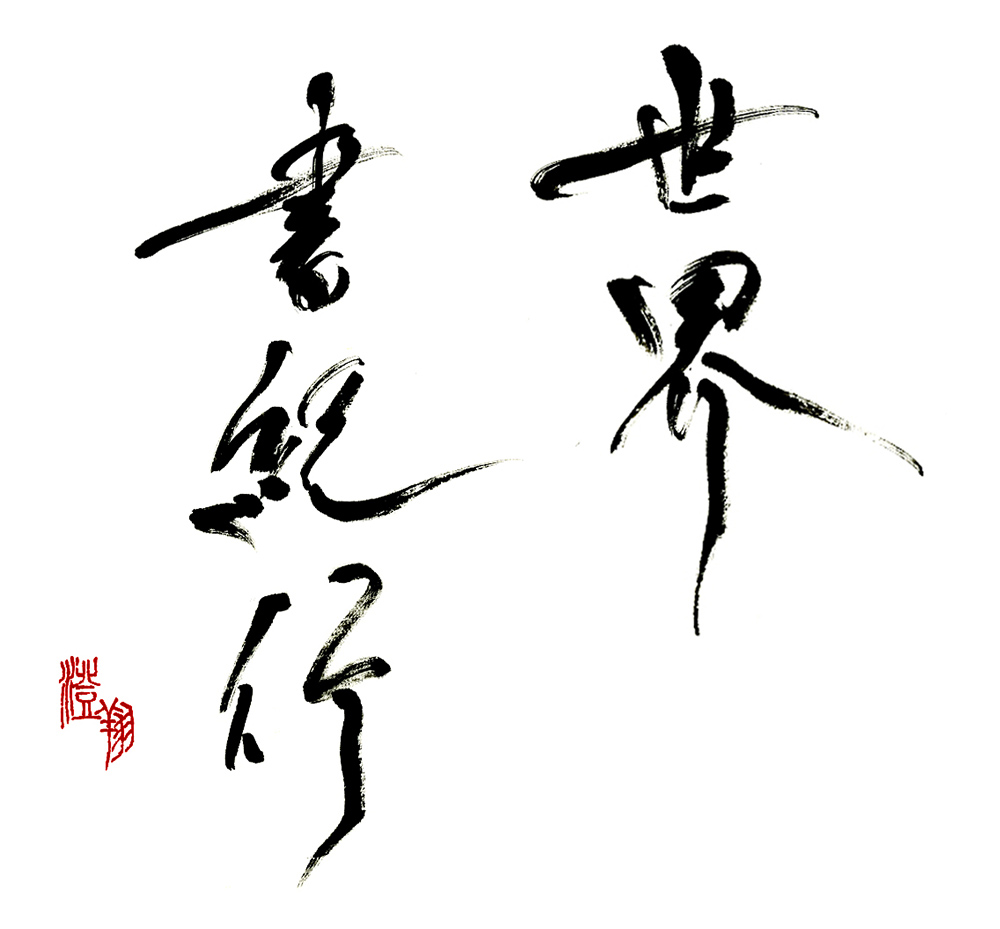 世界
書紀行
澄翔